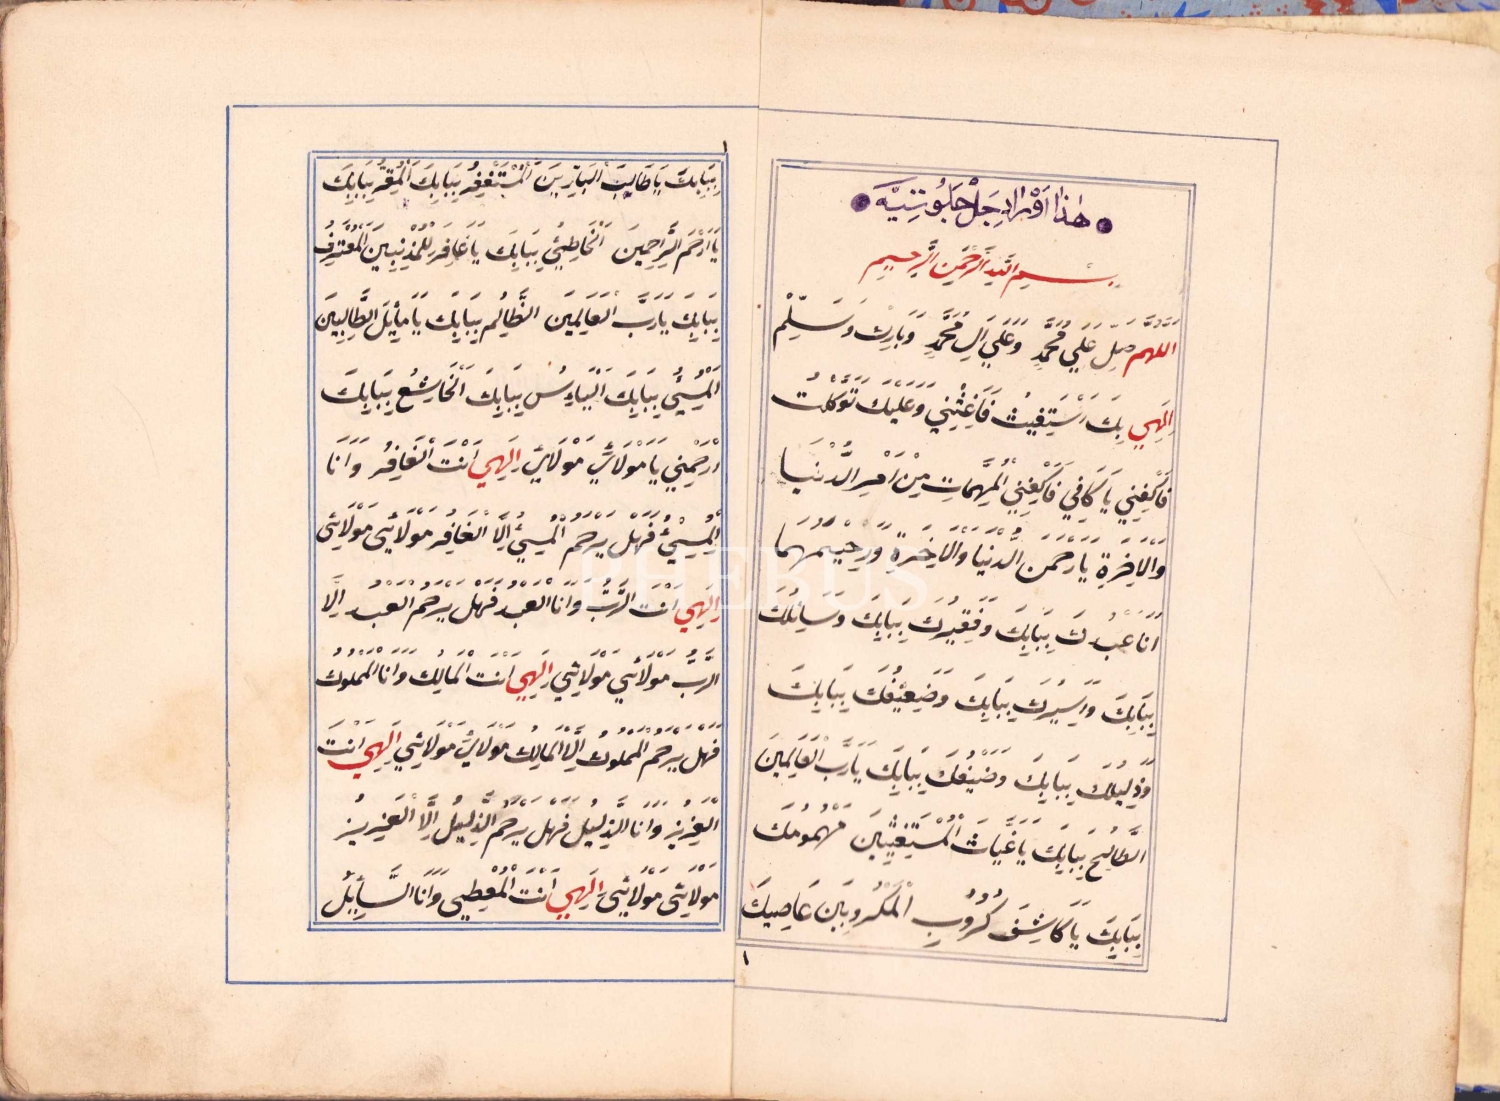 هٰذا اَوْرادِ جَلْجَلُوتِيَّه
بسم الله الرحمن الرحيم
اَللّٰهُمَّ صَلِّ عَلٰي مُحَمَّدٍ وَعَلٰي اٰلِ مُحَمَّدٍ وَبَارِكْ وَسَلِّمْ
اِلٰهِي بِكَ اَسْتَغِيثُ فَاَغِثْنِي وَعَلَيْكَ تَوَكَّلْتُ
فَاكْفِنِي يَا كَافِي فَاكْفِنِي الْمُهِمَّاتِ مِنْ اَمْرِ الدُّنْيَا
وَالْاٰخِرَةِ يَا رَحْمٰنَ الدُّنْيَا وَالْاٰخِرَةِ وَرَحِيْمَهُمَا
اَنَا عَبْدُكَ بِبَابِكَ وَفَقِيرُكَ بِبَابِكَ وَسَائِلُكَ
بِبَابِكَ وَاَسِيْرُكَ بِبَابِكَ وَضَعِيْفُكَ بِبَابِكَ
وَذَلِيْلُكَ بِبَابِكَ وَضَيْفُكَ بِبَابِكَ يَارَبَّ الْعَالَمِينَ
الطَّالِحُ بِبَابِكَ يَا غَيَّاثَ الْمُسْتَغِيْثِينَ مَهْمُومُكَ
بِبَابِكَ يَا كَاشِفَ كُرُوبِ الْمَكْرُوبِينَ عَاصِيكَ
١
١
بِبَابِكَ يَا طَالِبَ الْبَارِّينَ اَلْمُسْتَغْفِرُ بِبَابِكَ اَلْمُقِرُّ بِبَابِكَ
يَا اَرْحَمَ الرَّاحِمِينَ اَلْخَاطِئُ بِبَابِكَ يَا غَافِرَ لِلْمُذْنِبِينَ الْمُعْتَرِفُ
بِبَابِكَ يَا رَبَّ الْعَالَمِينَ الظَّالِمُ بِبَابِكَ يَا مَأْيَلَ الطَّالِبِينَ
اَلْمُسِيْئُ بِبَابِكَ اَلْبَاءِسُ بِبَابِكَ اَلْخَاشِعُ بِبَابِكَ
اِرْحَمْنِي يَا مَوْلَايَ مَوْلَايَ اِلٰهِي اَنْتَ الْغَافِرُ وَاَنَا
الْمُسِيْئُ فَهَلْ يَرْحَمُ الْمُسِيْئَ اِلَّا الْغَافِرُ مَوْلَائِي مَوْلَائِي
اِلٰهِي اَنْتَ الرَّبُّ وَاَنَا الْعَبْدُ فَهَلْ يَرْحَمُ الْعَبْدَ اِلَّا
الرَّبُّ مَوْلَائِي مَوْلَائِي اِلٰهِي اَنْتَ الْمَالِكُ وَاَنَا الْمَمْلُوكُ
فَهَلْ يَرْحَمُ الْمَمْلُوكَ اِلَّا الْمَالِكُ مَوْلَايَ مَوْلَائِي اِلٰهِي اَنْتَ
الْعَزِيزُ وَاَنَا الذَّلِيلُ فَهَلْ يَرْحَمُ الذَّلِيلَ اِلَّا الْعَزِيزُ
مَوْلَائِي مَوْلَائِي اِلٰهِي اَنْتَ الْمُعْطِي وَاَنَا السَّائِلُ
PHEBUS